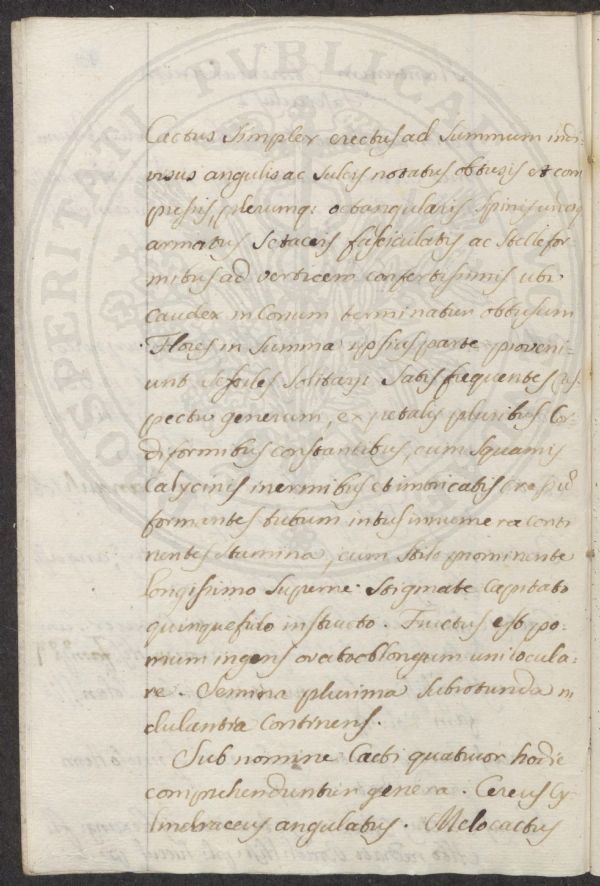 Cactus simplex erectus ad summum indi-
visus angulis ac sulcis notatus obtusis et com
pressis, plerumq: octangularis spinis
armatus setaceis fasciculatis ac stellefor-
mibus ad verticem confertissimis ubi
caudex in Conum terminatur obtusum
Flores in summa ipsius parte proveni-
unt sessiles solitarij satis frequentes res
pectu generum, ex petalis pluribus Cor-
diformibus constantibus, cum squamis
Calycinis inermibus et imbricatis
formantes tubum intus innumera conti
nentes stamina, cum stilo prominente
longissimo superne stigmate Capitato
quinquefido instructo. Fructus est po-
mum ingens ovato oblongum unilocula-
re. Semina plurima subrotunda ni
dulantia Continens.
Sub nomine Cacti quatuor hodie
comprehenduntur genera. Cereus Cy-
lindraceus angulatus. Melocactus
PROSPERITATI PUBLICAE